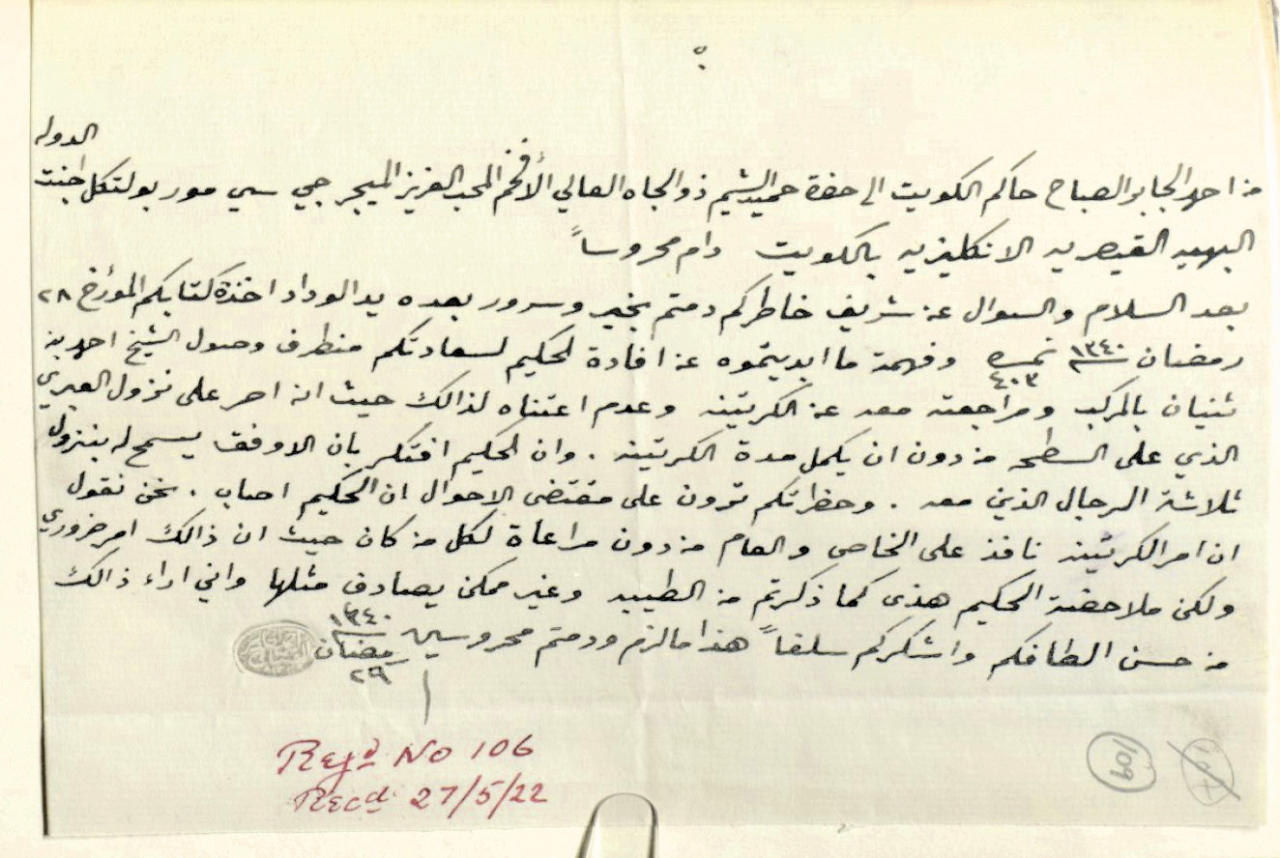 من احمد الجابر الصباح حاكم الكويت الى حضرة حميد الشيم ذو الجاه العالي الأفخم المحب العزيز الميجر جي سي مور بولتكل اجنت الدوله
البهيه القيصريه الانكليزيه بالكويت دام محروساً
بعد السلام والسوال عن شريف خاطركم دمتم بخير وسرور بعده بيد الوداد اخذة كتابكم المورخ ٢٨
رمضان ١٣٤٠ نمره ٤٠٣ وفهمة ما ابديتموه عن افادة الحكيم لسعادتكم منطرف وصول الشيخ احمد بن
ثنيان بالمركب ومراجعته معه عن الكرنتينه وعدم اعتناه لذالك حيث انه اصر على نزول العبري
الذي على السطحه من دون ان يكمل مدة الكرنتينه . وان الحكيم افتكر بان الاوفق يسمح له بنزول
ثلاثة الرجال الذين معه . وحظراتكم ترون على مقتضى الاحوال ان الحكيم اصاب . نحن نقول
ان امر الكرنتينه نافذ على الخاص والعام من دون مراعاة لكل من كان حيث ان ذالك امر ضروري
ولكن ملاحضة الحكيم هذى كما ذكرتم من الطيبه وغير ممكن يصادف مثلها واني اراء ذالك
من حسن الطافكم واشكركم سلفاً هذا مالزم ودمتم محروسين
٢٩ رمضان ١٣٤٠
Regd No 106
Recd 27/5/22
109